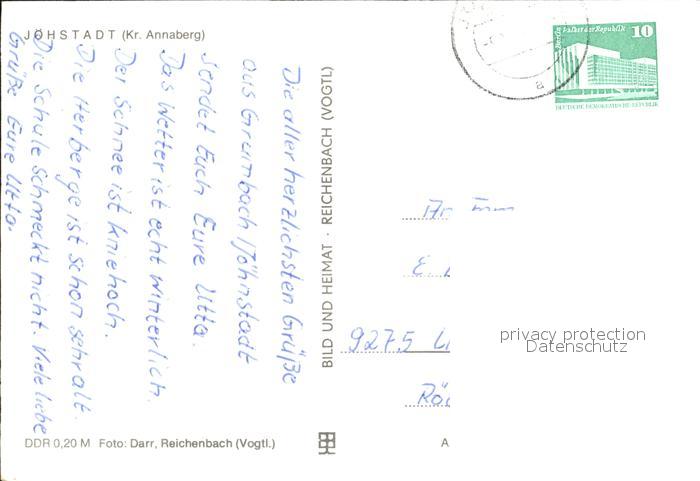 JÖHSTADT (Kr. Annaberg)
Die aller herzlichsten Grüße
aus Grumbach/Jöhnstadt
sendet Euch Eure Utta.
Das Wetter ist echt winterlich.
Der Schnee ist kniehoch.
Die Herberge ist schon sehr alt.
Die Schule schmeckt nicht. Viele liebe
Grüße Eure Utta.
DDR 0,20 M Foto: Darr, Reichenbach (Vogtl.)
BILD UND HEIMAT · REICHENBACH (VOGTL)
10
Berlin, Palast der Republik
DEUTSCHE DEMOKRATISCHE REPUBLIK
a
9275
privacy protection
Datenschutz
A